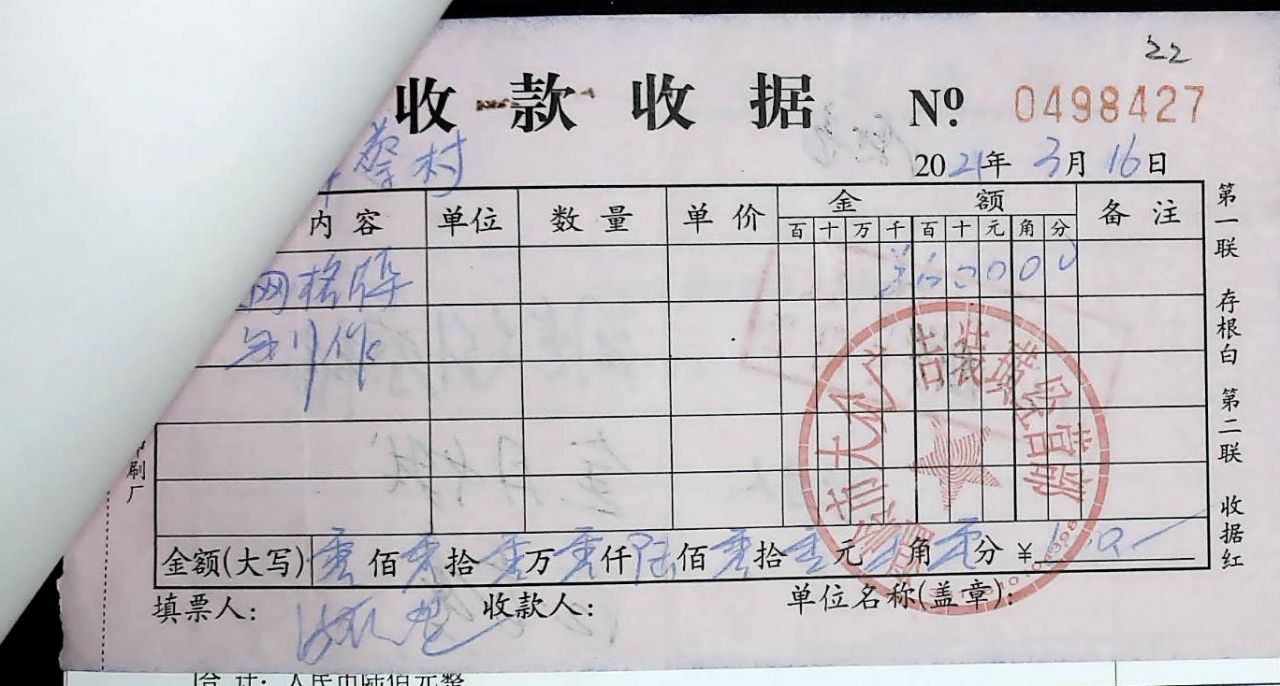 22
收款收据 Nº 0498427
蔡村
2021年3月16日
内容 单位 数量 单价 金额 备注
百 十 万 千 百 十 元 角 分
网格牌 ¥60000
制作
金额(大写) 零佰零拾零万零仟陆佰零拾零元零角零分 ¥
填票人: 收款人: 单位名称(盖章):
第一联 存根白 第二联 收据红
印刷厂
市大众广告装璜经营部
合计: 人民币陆佰元整